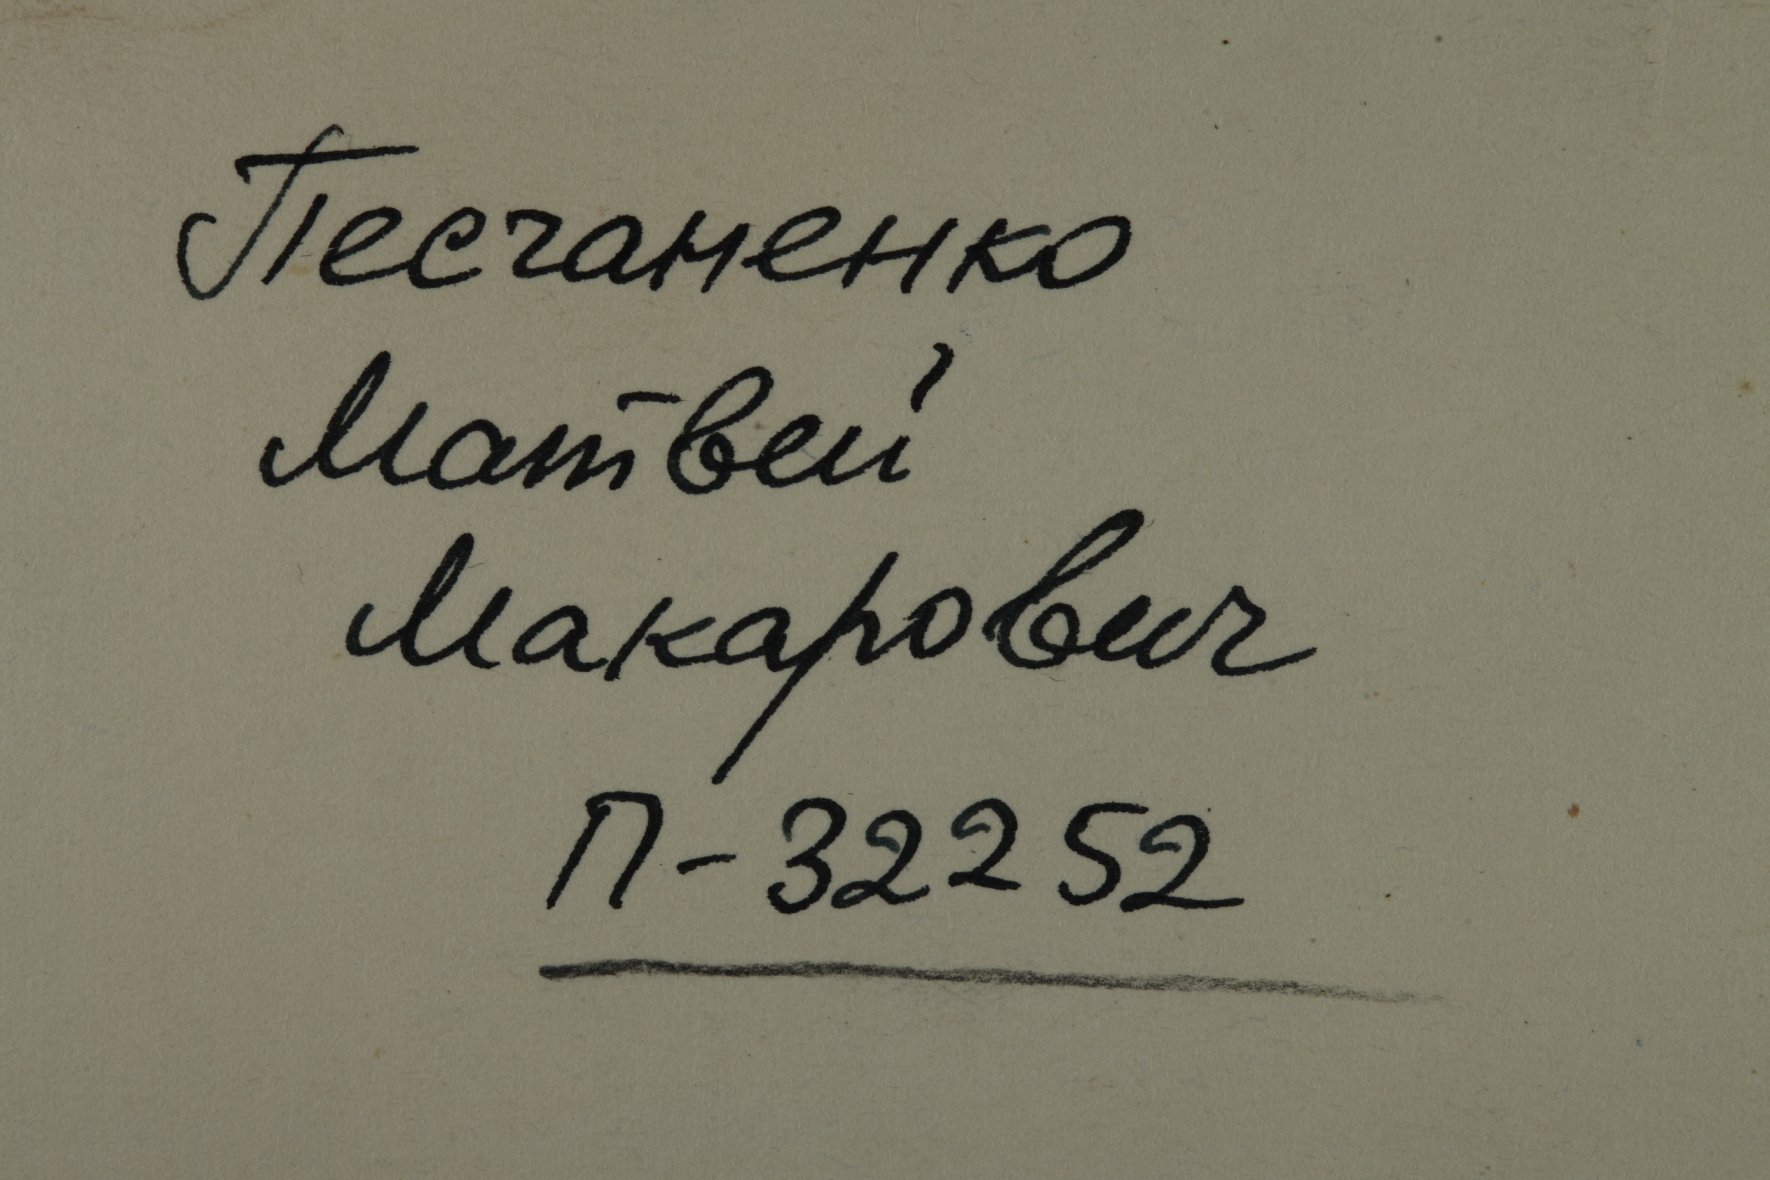 Песчаненко
Матвей
Макарович
П-32252